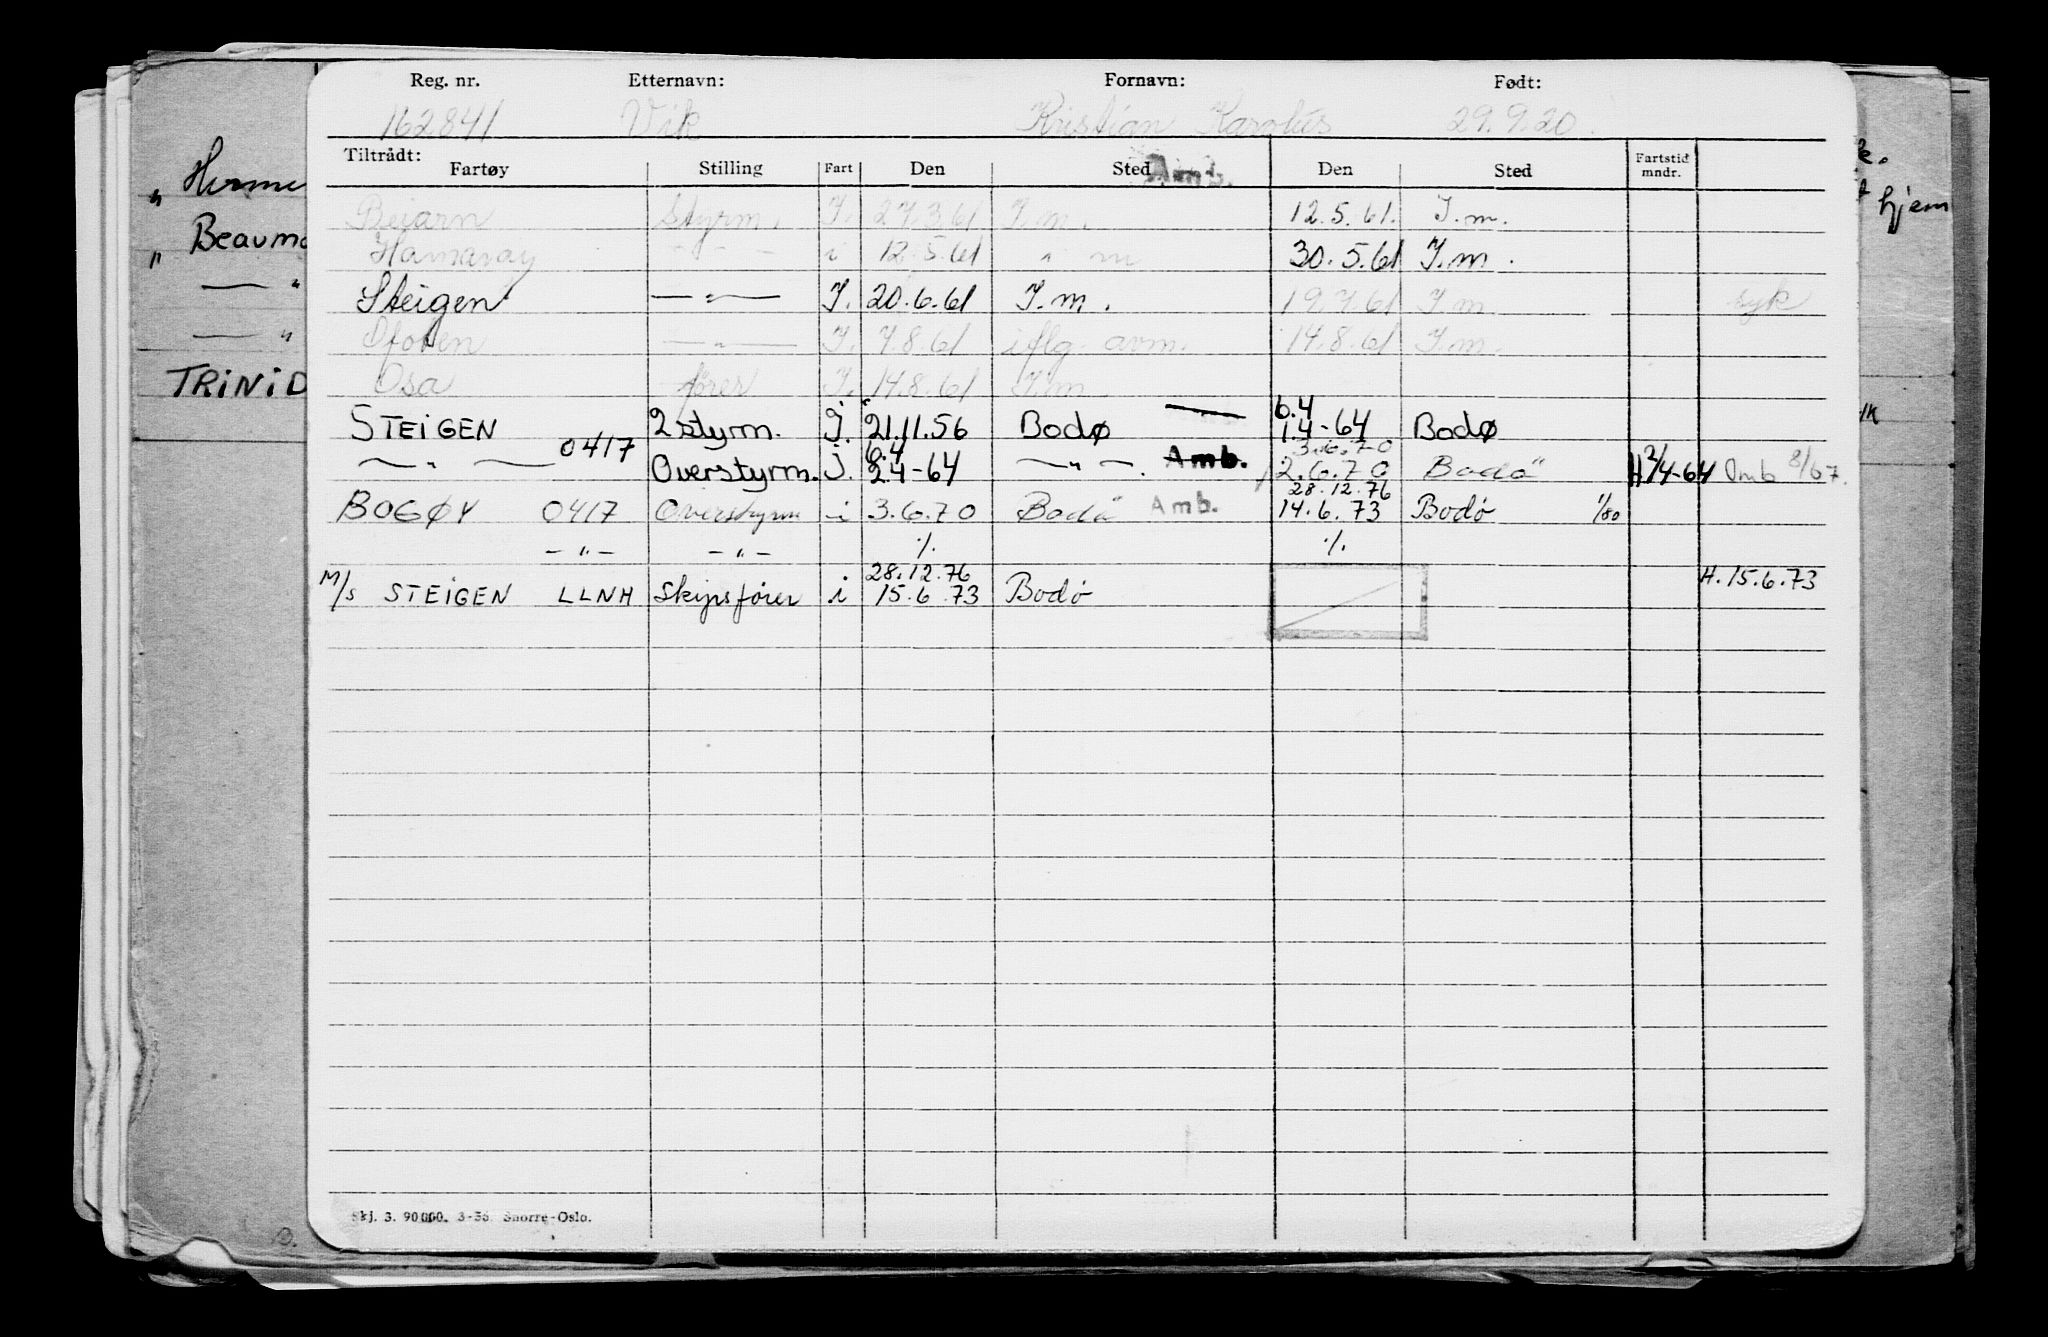 Reg. nr. Etternavn: Fornavn: Født:
162841 Vik Kristian 29.9.20.
Tiltrådt:
Fartøy Stilling Fart Den Sted Amb. Den Sted Fartstid mndr.
Beiarn styrm. I. 27.3.61 I.m. 12.5.61. I.m.
Hamarøy - " - i 12.5.61 " m 30.5.61 I.m.
Steigen — " — I. 20.6.61 I.m. 19.7.61 I.m syk
Ofoten — " — I. 7.8.61 iflg. avm. 14.8.61 I.m.
Osa fører I. 14.8.61 I.m
6.4
STEIGEN 2 styrm. I. 21.11.56 Bodø 1.4-64 Bodø
6.4 3.6.70
— " — 0417 Overstyrm. i. 2.4-64 — " —. Amb. 2.6.70 Bodö H 2/4-64 Omb 8/67.
28.12.76
BOGØY 0417 Overstyrm i 3.6.70 Bodö Amb. 14.6.73 Bodø 1/80
- " - - " - ./. ./.
28.12.76
M/s STEIGEN LLNH Skipsfører i 15.6.73 Bodø H. 15.6.73
Skj. 3. 90000. 3-56. Snorre-Oslo.
" Herme
" Beaumo
— "
— "
TRINID
k.
t hjem